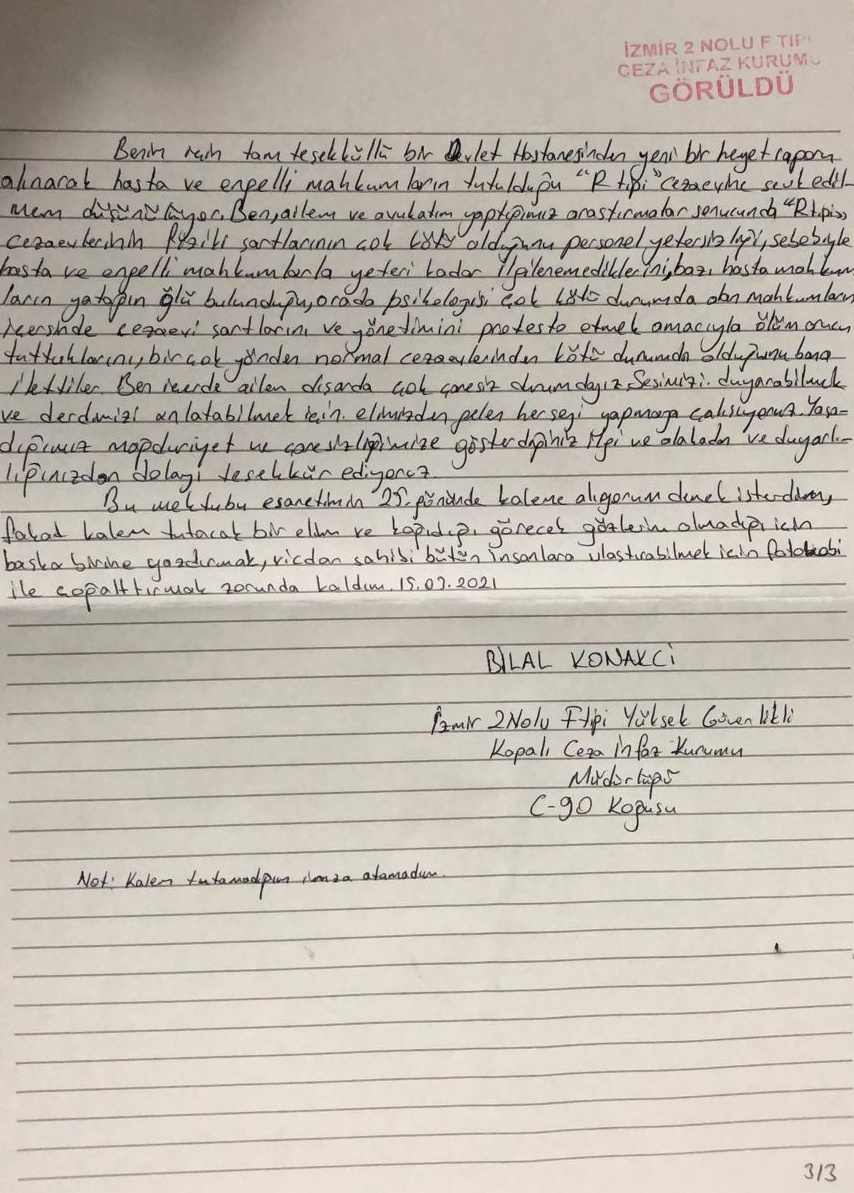 İZMİR 2 NOLU F TİPİ
CEZA İNFAZ KURUMU
GÖRÜLDÜ
Benim için tam teşekküllü bir Devlet Hastanesinden yeni bir heyet raporu
alınarak hasta ve engelli mahkumların tutulduğu "R tipi" cezaevine sevk edil-
mem düşünülüyor. Ben, ailem ve avukatım yaptığımız araştırmalar sonucunda "R tipi"
cezaevlerinin fiziki şartlarının çok kötü olduğunu personel yetersizliği, sebebiyle
hasta ve engelli mahkumlarla yeteri kadar ilgilenemediklerini, bazı hasta mahkum
ların yatağın ölü bulunduğu, orada psikolojisi çok kötü durumda olan mahkumların
içersinde cezaevi şartlarını ve yönetimini protesto etmek amacıyla ölüm orucu
tuttuklarını, bir çok yönden normal cezaevlerinden kötü durumda olduğunu bana
ilettiler. Ben içerde ailem dışarda çok çaresiz durumdayız. Sesimizi duyurabilmek
ve derdimizi anlatabilmek için elimizden gelen herşeyi yapmaya çalışıyoruz. Yaşa-
dığımız mağduriyet ve çaresizliğimize gösterdiğiniz ilgi ve alakadan ve duyarlı-
lığınızdan dolayı teşekkür ediyoruz.
Bu mektubu esaretimin 25. gününde kaleme alıyorum demek isterdim,
fakat kalem tutacak bir elim ve kağıdı görecek gözlerim olmadığı için
başka birine yazdırmak, vicdan sahibi bütün insanlara ulaştırabilmek için fotokobi
ile çoğalttırmak zorunda kaldım. 15.07.2021
BİLAL KONAKCİ
İzmir 2 Nolu F tipi Yüksek Güvenlikli
Kapalı Ceza İnfaz Kurumu
Müdürlüğü
C-90 Koğuşu
Not: Kalem tutamadığım imza atamadım.
3/3